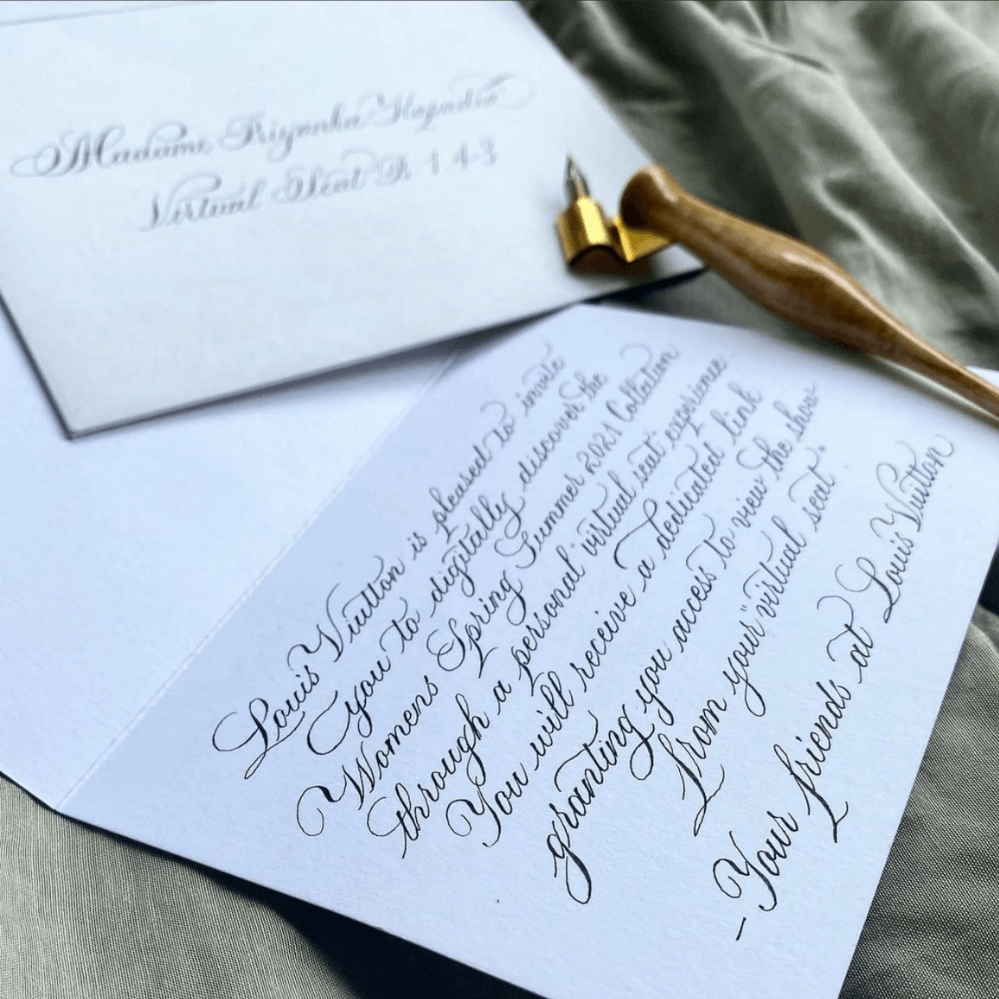 Madame Priyanka Kapadia
Virtual Seat P. 1-4-3
Louis Vuitton is pleased to invite
you to digitally discover the
Womens Spring Summer 2021 Collection
through a personal "virtual seat" experience.
You will receive a dedicated link
granting you access to view the show
from your "virtual seat".
- Your friends at Louis Vuitton